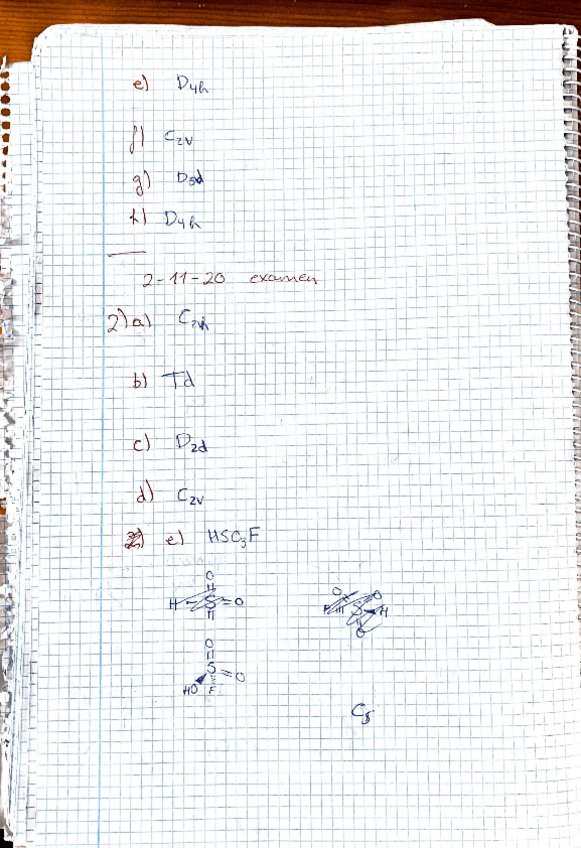 e) D4h
f) C2v
g) D5d
h) D4h
2-11-20 examen
2) a) C2h
b) Td
c) D2d
d) C2v
e) HSO3F
O
H-S=O
O
S
=O
HO
F
Cs